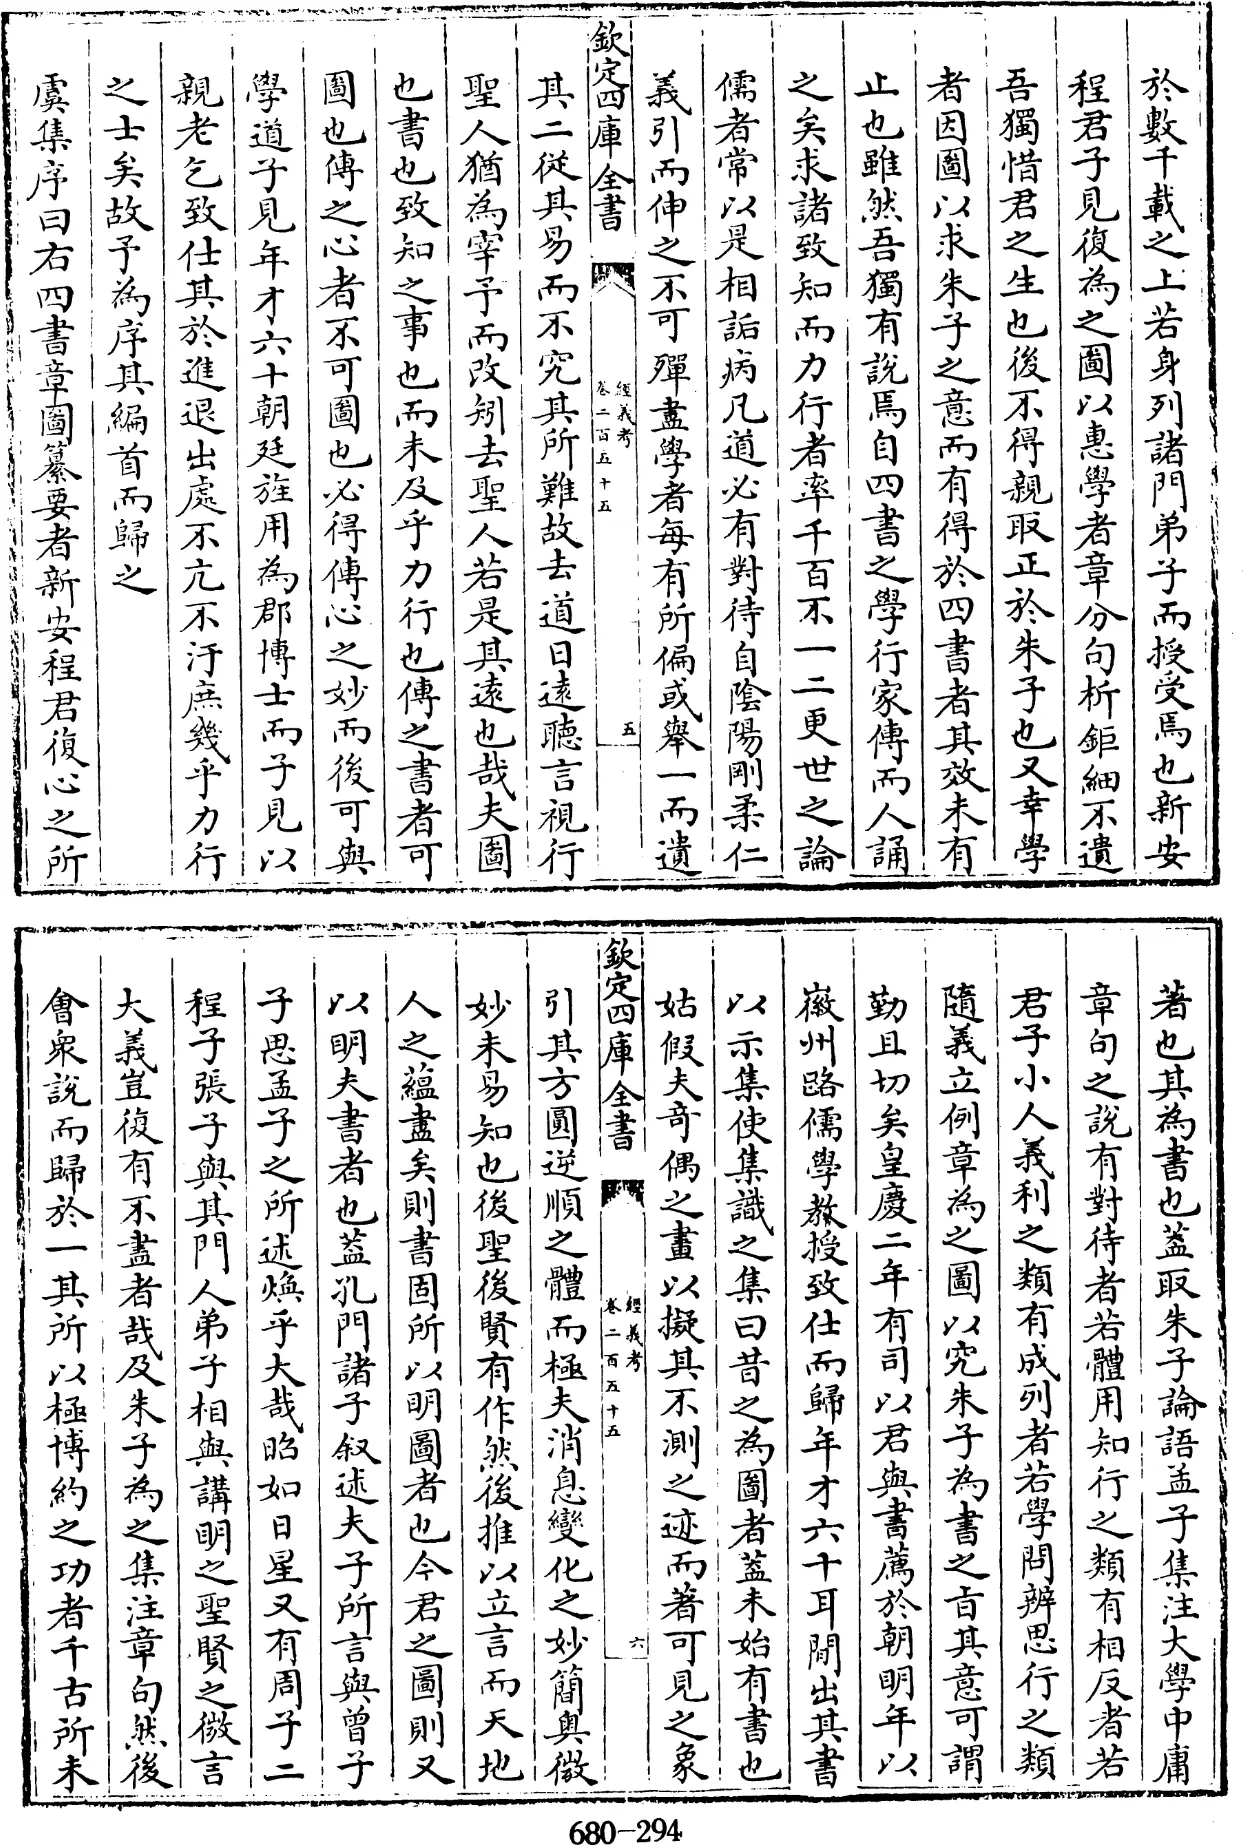 於數千載之上若身列諸門弟子而授受焉也新安
程君子見復為之圖以惠學者章分句析鉅細不遺
吾獨惜君之生也後不得親取正於朱子也又幸學
者因圖以求朱子之意而有得於四書者其效未有
止也雖然吾獨有說焉自四書之學行家傳而人誦
之矣求諸致知而力行者率千百不一二更世之論
儒者常以是相詬病凡道必有對待自陰陽剛柔仁
義引而伸之不可殫盡學者每有所偏或舉一而遺
欽定四庫全書
經義考
卷二百五十五
五
其二從其易而不究其所難故去道日遠聽言視行
聖人猶為宰予而改矧去聖人若是其遠也哉夫圖
也書也致知之事也而未及乎力行也傳之書者可
圖也傳之心者不可圖也必得傳心之妙而後可與
學道子見年才六十朝廷旌用為郡博士而子見以
親老乞致仕其於進退出處不亢不汙庶幾乎力行
之士矣故予為序其編首而歸之
虞集序曰右四書章圖纂要者新安程君復心之所
著也其為書也蓋取朱子論語孟子集注大學中庸
章句之說有對待者若體用知行之類有相反者若
君子小人義利之類有成列者若學問辨思行之類
隨義立例章為之圖以究朱子為書之旨其意可謂
勤且切矣皇慶二年有司以君與書薦於朝明年以
徽州路儒學教授致仕而歸年才六十耳間出其書
以示集使集識之集曰昔之為圖者蓋未始有書也
姑假夫奇偶之畫以擬其不測之迹而著可見之象
欽定四庫全書
經義考
卷二百五十五
六
引其方圓逆順之體而極夫消息變化之妙簡奧微
妙未易知也後聖後賢有作然後推以立言而天地
人之蘊盡矣則書固所以明圖者也今君之圖則又
以明夫書者也蓋孔門諸子叙述夫子所言與曾子
子思孟子之所述煥乎大哉昭如日星又有周子二
程子張子與其門人弟子相與講明之聖賢之微言
大義豈復有不盡者哉及朱子為之集注章句然後
會衆說而歸於一其所以極博約之功者千古所未
680-294